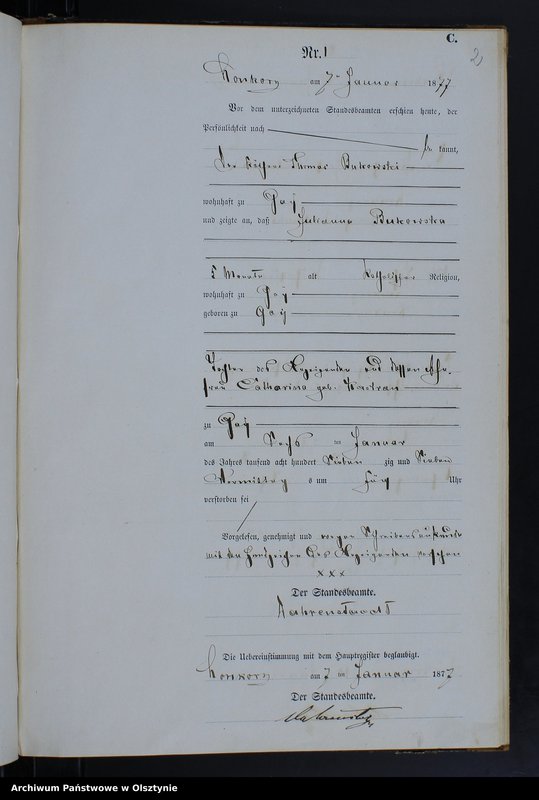 C.
2
Nr. 1
am 7 Januar 1877
Vor dem unterzeichneten Standesbeamten erschien heute, der
Persönlichkeit nach
be kannt,
der Thomas Bukowski
wohnhaft zu Gay
und zeigte an, daß Julianna Bukowska
5 Monate alt katholischer Religion,
wohnhaft zu Gay
geboren zu Gay
Tochter des Anzeigenden und dessen Ehe-
frau Catharina geb.
zu Gay
am Sechs ten Januar
des Jahres tausend acht hundert Sieben zig und Sieben
Vormittag s um fünf Uhr
verstorben sei
Vorgelesen, genehmigt und wegen Schreibensunkunde
mit den Handzeichen des Anzeigenden versehen
x x x
Der Standesbeamte.
Die Uebereinstimmung mit dem Hauptregister beglaubigt.
am 7 ten Januar 1877
Der Standesbeamte.
Archiwum Państwowe w Olsztynie